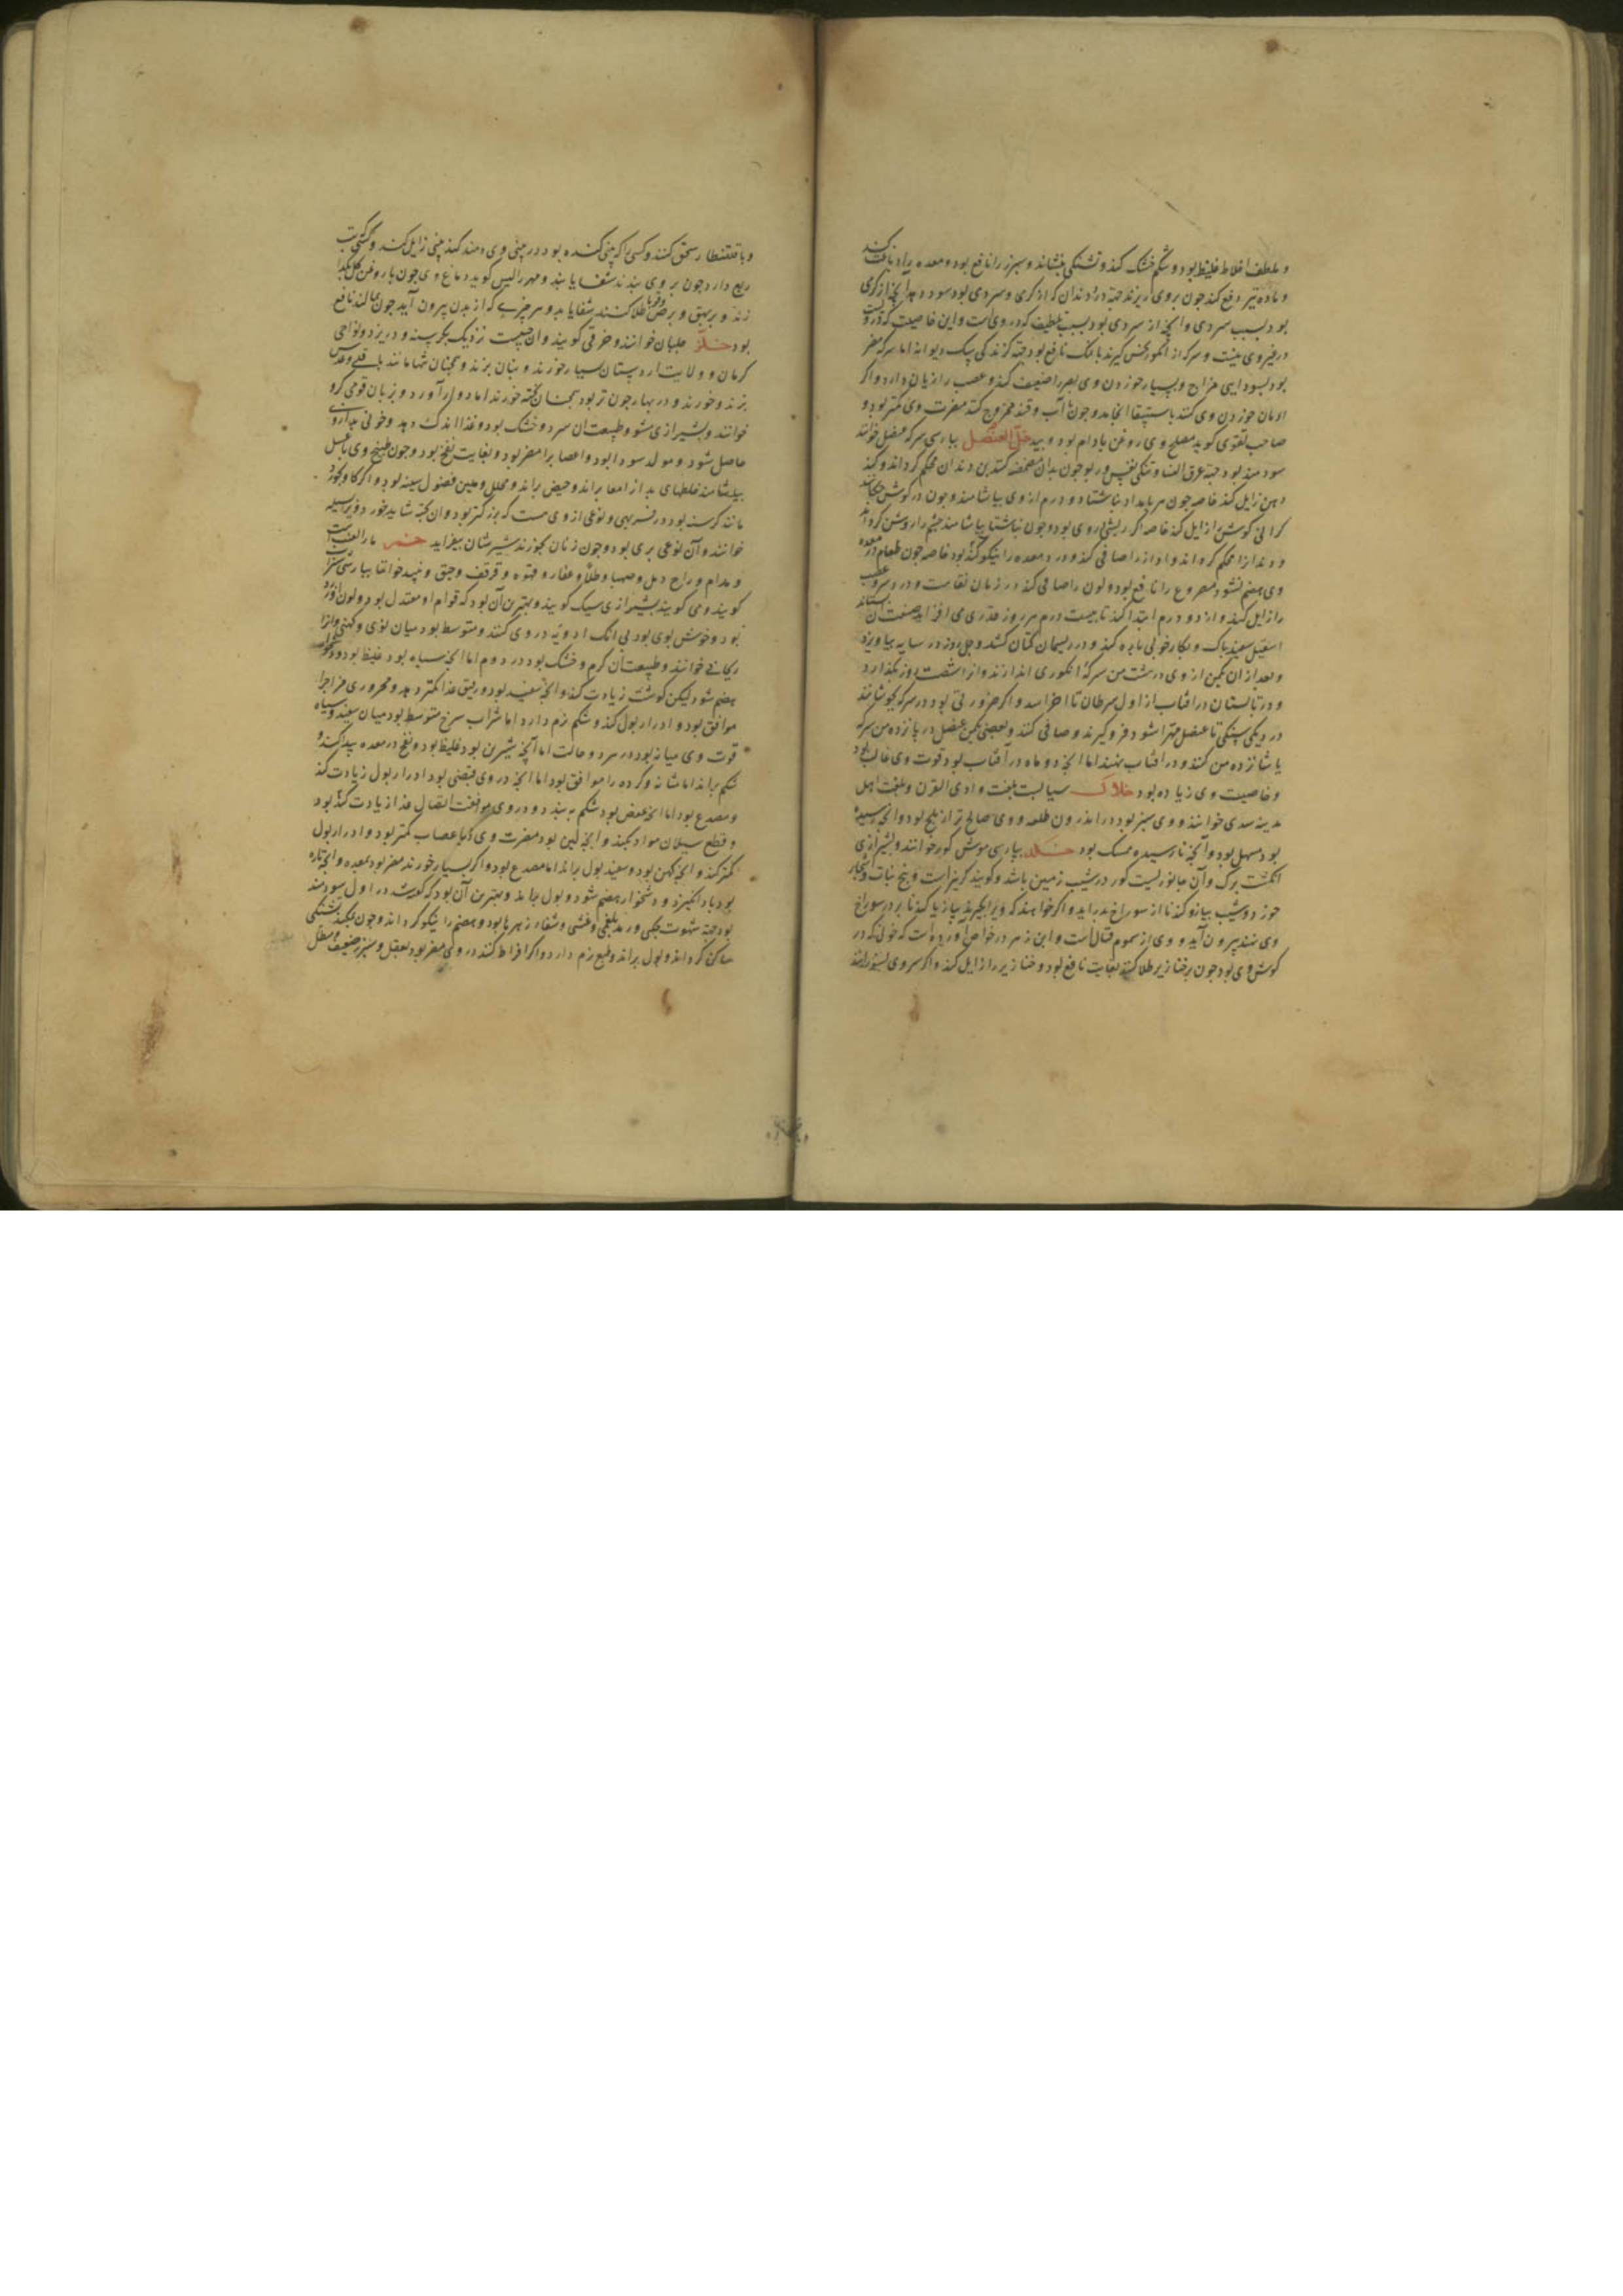 و ملطف اخلاط غلیظ بود و شکم خشک کند و تشنکی بنشاند و سپرز را نافع بود و معده را دباغت کند
و ماده تیز دفع کند چون بروی ریزند جهة درد دندان که از کرمی و سردی بود سود دهد انچه از کرمی
بود بسبب سردی و انچه از سردی بود بسبب تلطیف که در وی است و این خاصیت که در وی است
در غیر وی نیست و سرکه از انکور کیرند با نمک نافع بود جهة کزندکی سک دیوانه اما سرکه مضر
بود بسودایی مزاج و بسیار خوردن وی بصر را ضعیف کند و عصب را زیان دارد و اکر
ادمان خوردن وی کنند باستسقا انجامد و چون بآب و قند ممزوج کنند مضرت وی کمتر بود و
صاحب تقوی کوید مصلح وی روغن بادام بود خل العنصل بپارسی سرکه عنصل خوانند
سودمند بود جهة عرق النسا و تنکی نفس و ربو چون بدان مضمضه کنند بن دندان محکم کرداند و کند
دهن زایل کند خاصه چون هر بامداد ناشتا دو درم از وی بیاشامند و چون در کوش چکانند
کرانی کوش زایل کند خاصه اکر ریشی در وی بود و چون ناشتا بیاشامند چشم را روشن کرداند
و دندانرا محکم کرداند و آواز را صافی کند و درد معده را نیکو کننده بود خاصه چون طعام در معده
وی هضم نشود و مصروع را نافع بود و لون را صافی کند در زمان نقاهت و درد سر و عصب
را زایل کند و از دو درم ابتدا کند تا بیست درم هر روز قدری می افزاید صفت آن بستانند
اسقیل سفید پاک و بکارد چوبی پاره کند و در ریسمان کتان کشد و چهل روز در سایه بیاویزد
و بعد از آن یکمن از وی در هشت من سرکه انکوری اندازند و از شصت روز بکذارد
و در تابستان در افتاب از اول سرطان تا اخر اسد و اکر ضرورتی بود در سرکه بجوشانند
در دیکی سنکی تا عنصل مهرا شود فرو کیرند و صافی کنند و بعضی یکمن عنصل در پانزده من سرکه
یا شانزده من کنند و در افتاب نهند اما انچه دو ماه در آفتاب بود قوت وی غالب بود
و خاصیت وی زیاده بود خلال سیابست بلغت وادی القری و بلغت اهل
مدینه سدی خوانند و وی سبز بود در اندرون طلعه و وی صالح تر از بلح بود و انچه رسیده
بود مسهل بود و آنچه نارسیده ممسک بود خلد بپارسی موش کور خوانند و بشیرازی
انکشت برک و آن جانوریست کور در شیب زمین باشد و کویند کر نیز است و بیخ نبات و اشجار
خورد و شیب پیاز و کندنا از سوراخ بدر آید و اکر خواهند که ویرا بکیرند پیاز یا کندنا بر در سوراخ
وی نهند بیرون آید و وی از سموم قتاله است و ابن زهر در خواص آورده است که خونی که در
کوش وی بود چون بر خنازیر طلا کنند بغایت نافع بود و خنازیر را زایل کند و اکر سر وی بسوزانند
و با قلقطار سحق کنند و کسی را که بینی کنده بود در بینی وی دمند کند بینی زایل کند و کسی که تب
ربع دارد چون بر وی بندند شفا یابد و مهراریس کوید دماغ وی چون با روغن کل بکدا
زند و بر بهق و برص و قوبا طلا کنند شفا یابد و هر چیزی که از بدن بیرون آید چون بمالند نافع
بود خلر جلبان خوانند و خرفی کویند و ان حبیست نزدیک بکرسنه و در یزد و نواحی
کرمان و ولایت اردستان بسیار خورند و بنان پزند و همچنان تنها مانند باقلی و عدس
پزند و خورند و در بهار چون تر بود همچنان پخته خورند اما دوار آورد و بزبان قومی کرو
خوانند و بشیرازی شو و طبیعت آن سرد و خشک بود و غذا اندک دهد و خونی بد از وی
حاصل شود و مولد سودا بود و اعصاب را مضر بود و بغایت نفخ بود و چون طبیخ وی با عسل
بیاشامند خلطهای بد از امعا براند و حیض براند و محلل و ملین فضول سینه بود و اکر کاو بخورد
مانند کرسنه بود در فربهی و نوعی از وی هست که بزرکتر بود و ان پخته شاید خورد و ویرا بسیله
خوانند و آن نوعی بری بود و چون زنان بخورند شیرشان بیفزاید خمر ماء العنب است
و مدام و راح و مل و صهبا و طلا و عقار و قهوه و قرقف و رحیق و نبید خوانند بپارسی شراب
کویند و می کویند بشیرازی سیک کویند و بهترین آن بود که قوام او معتدل بود و لون او زرد
بود و خوش بوی بود بی انک ادویه در وی کنند و متوسط بود میان نوی و کهنی و انرا
ریحانی خوانند و طبیعت آن کرم و خشک بود در دوم اما انچه سیاه بود غلیظ بود و دشخوار
هضم شود لیکن کوشت زیادت کند و انچه سفید بود و رقیق غذا کمتر دهد و محروری مزاجرا
موافق بود و ادرار بول کند و شکم نرم دارد اما شراب سرخ متوسط بود میان سفید و سیاه
قوت وی میانه بود در هر دو حالت اما آنچه شیرین بود غلیظ بود و نفخ در معده پیدا کند و
شکم براند اما مثانه و کرده را موافق بود اما انچه در وی قبضی بود ادرار بول زیادت کند
و مصدع بود اما انچه عفص بود شکم به بندد و در وی موافقت اتصال غذا زیادت کننده بود
و قطع سیلان مواد بکند و انچه لین بود مضرت وی باعصاب کمتر بود و ادرار بول
کمتر کند و انچه کهن بود و سفید بول براند اما مصدع بود و اکر بسیار خورند مضر بود بمعده و انچه تازه
بود باد انکیزد و دشخوار هضم شود و بول براند و بهترین آن بود که کفته شد در اول سودمند
بود جهة شهوت کلبی و رمد بلغمی و غشی و شفاء زهرها بود و هضم را نیکو کرداند و چون بمکیدند تشنکی
ساکن کرداند و بول براند و طبع نرم دارد و اکر افراط کنند در وی مضر بود بعقل و سپرز ضعیف و مبطل